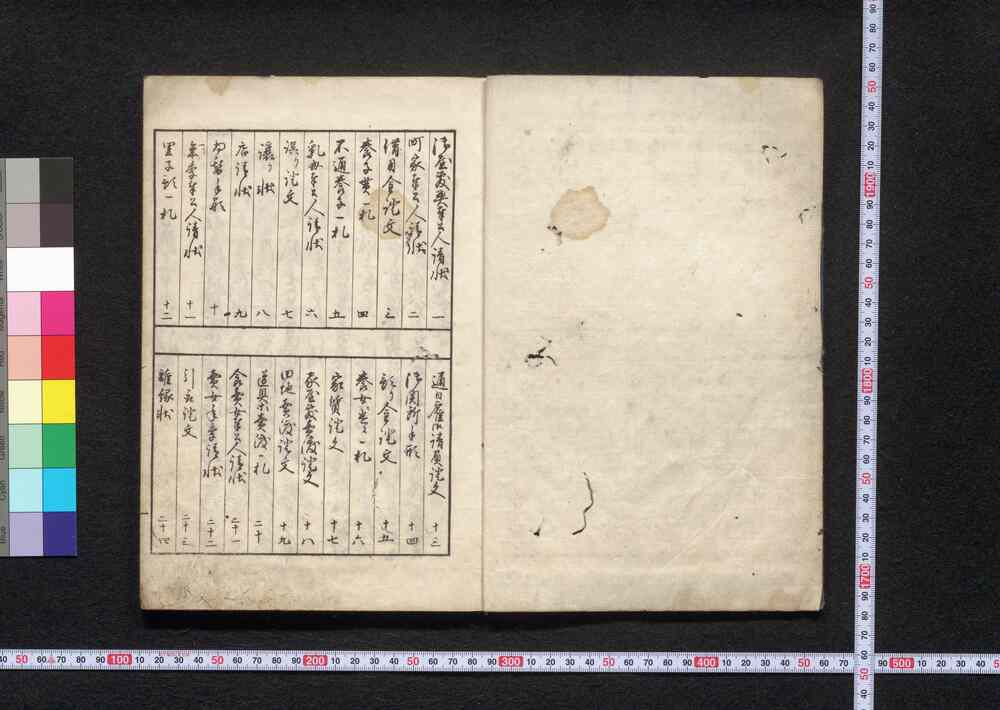 御屋敷奉公人請状 一
町家奉公人請状 二
借用金証文 三
養子貰一札 四
不通養子一札 五
乳母奉公人請状 六
誤り証文 七
譲り状 八
店請状 九
手形 十
年季奉公人請状 十一
一札 十二
通日雇請負証文 十三
御関所手形 十四
預り金証文 十五
養女一札 十六
家質証文 十七
家屋敷売渡証文 十八
田地売渡証文 十九
道具売渡一札 二十
食売女奉公人請状 二十一
売女年季請状 二十二
引取証文 二十三
離縁状 二十四